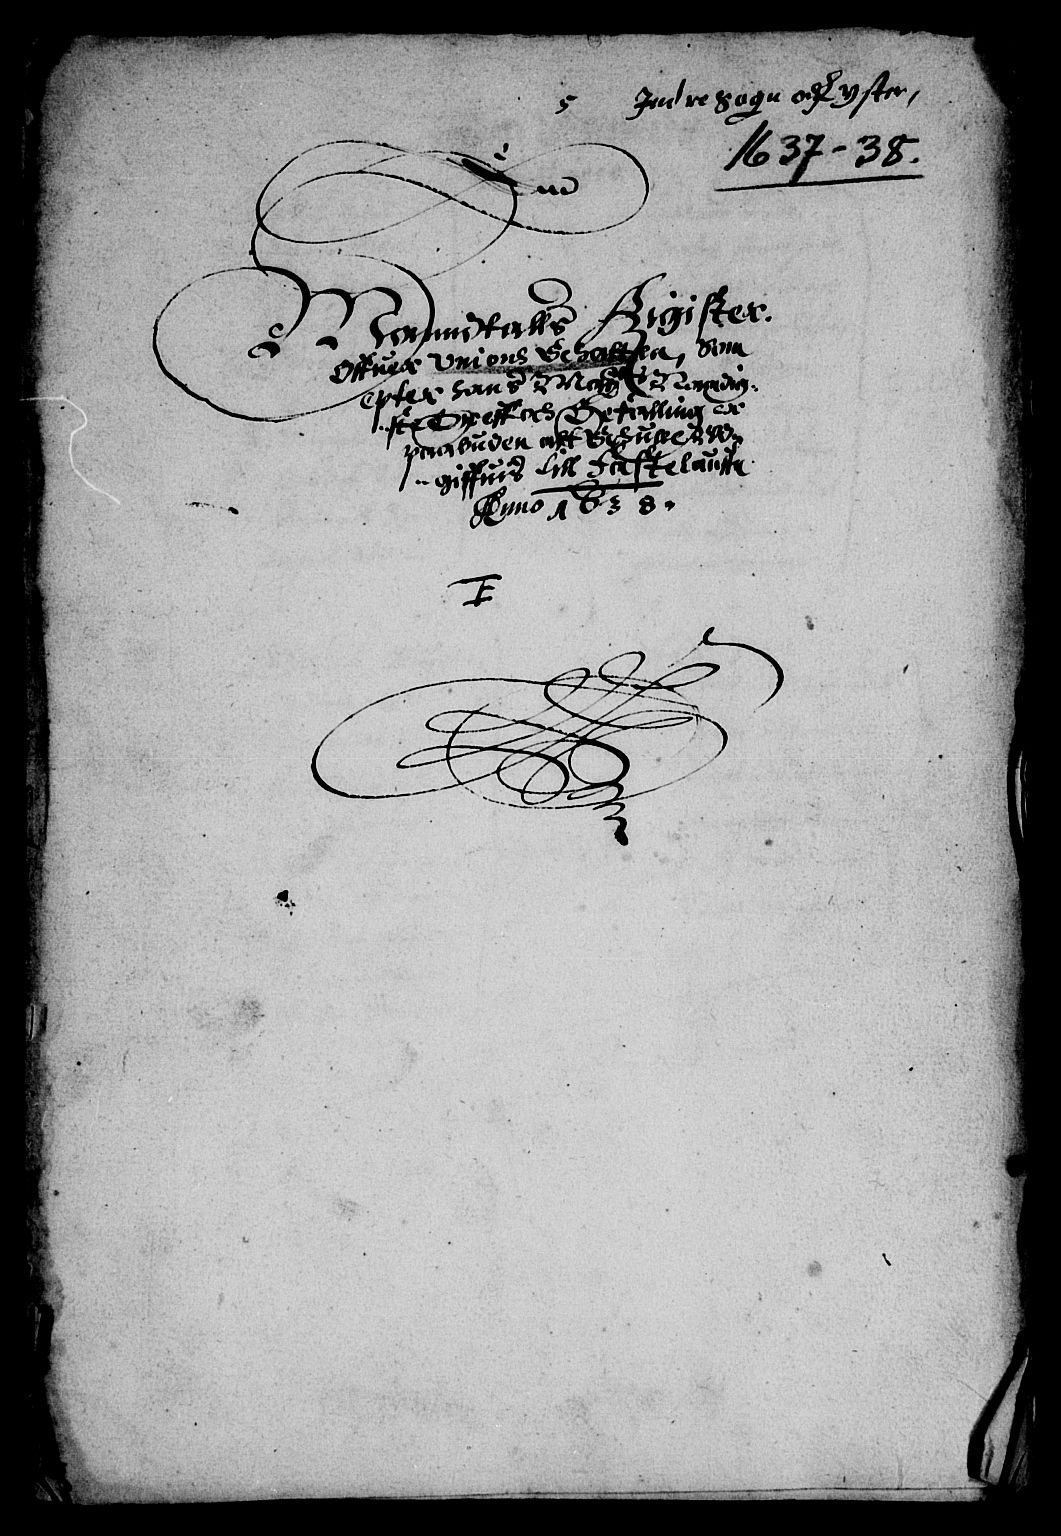 5 Indre Sogn och Lyster,
1637-38.
Mandtalls Register.
Offuer Unions Schatten, Som
epter hans Maÿtt Naadig-
ste Breff och Befalling er
paabuden att Schulle Ud-
giffuis till Fastelaufn
Anno 1638.